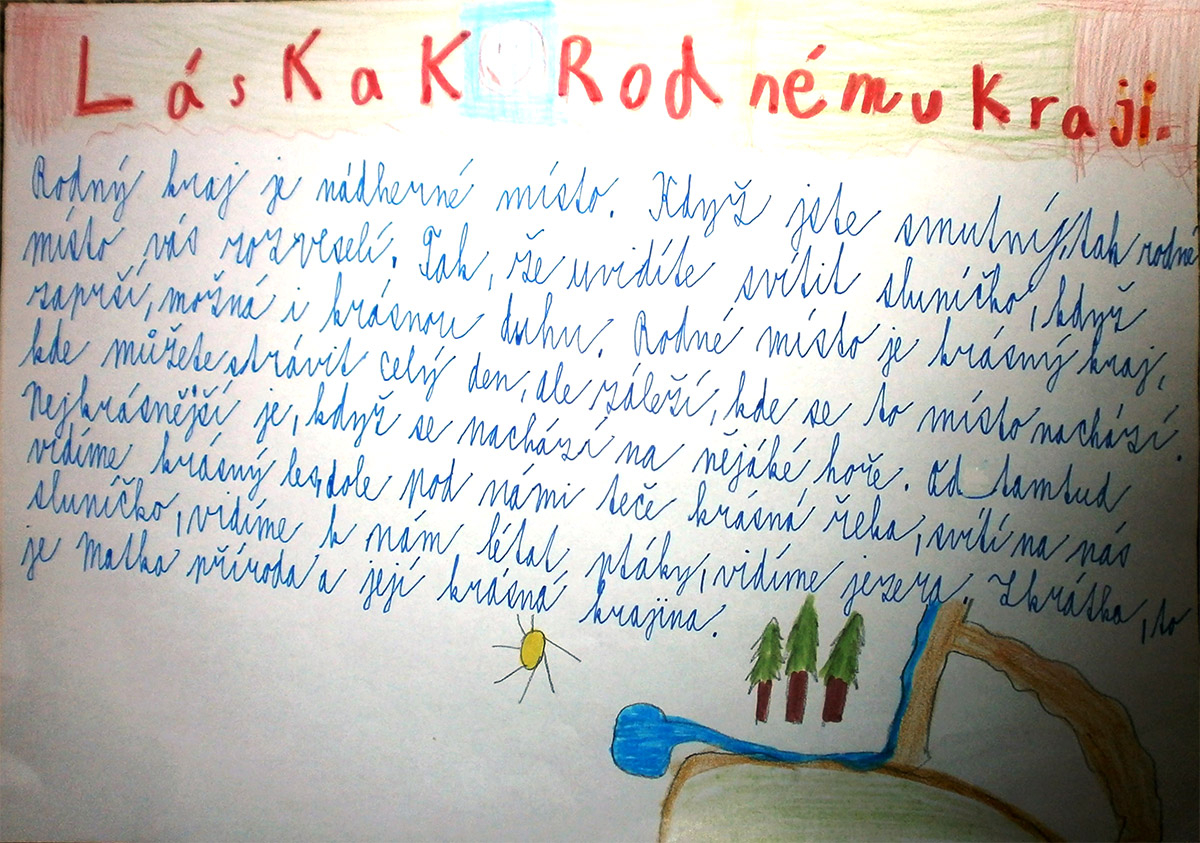 Láska K Rodnému Kraji.
Rodný kraj je nádherné místo. Když jste smutný, tak rodné
místo vás rozveselí. Tak, že uvidíte svítit sluníčko, když
zaprší, možná i krásnou duhu. Rodné místo je krásný kraj,
kde můžete strávit celý den, ale záleží, kde se to místo nachází.
Nejkrásnější je, když se nachází na nějáké hoře. Od tamtud
vidíme krásný les, dole pod námi teče krásná řeka, svítí na nás
sluníčko, vidíme k nám létat ptáky, vidíme jezera. Zkrátka, to
je Matka příroda a její krásná krajina.